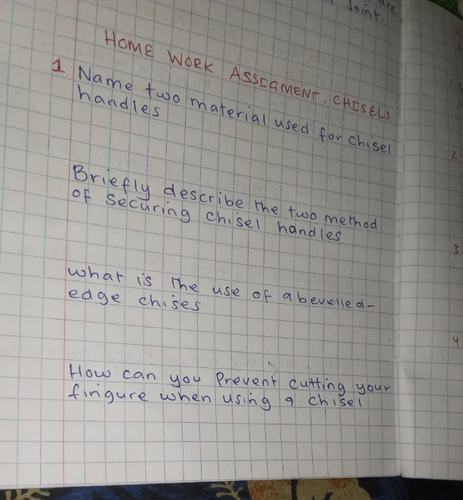 Joint.
HOME WORK ASSIGMENT. CHISELS
1 Name two material used for chisel
handles
Briefly describe the two method
of securing chisel handles
what is the use of a bevelled-
edge chises
How can you prevent cutting your
fingure when using a chisel
2
3
4